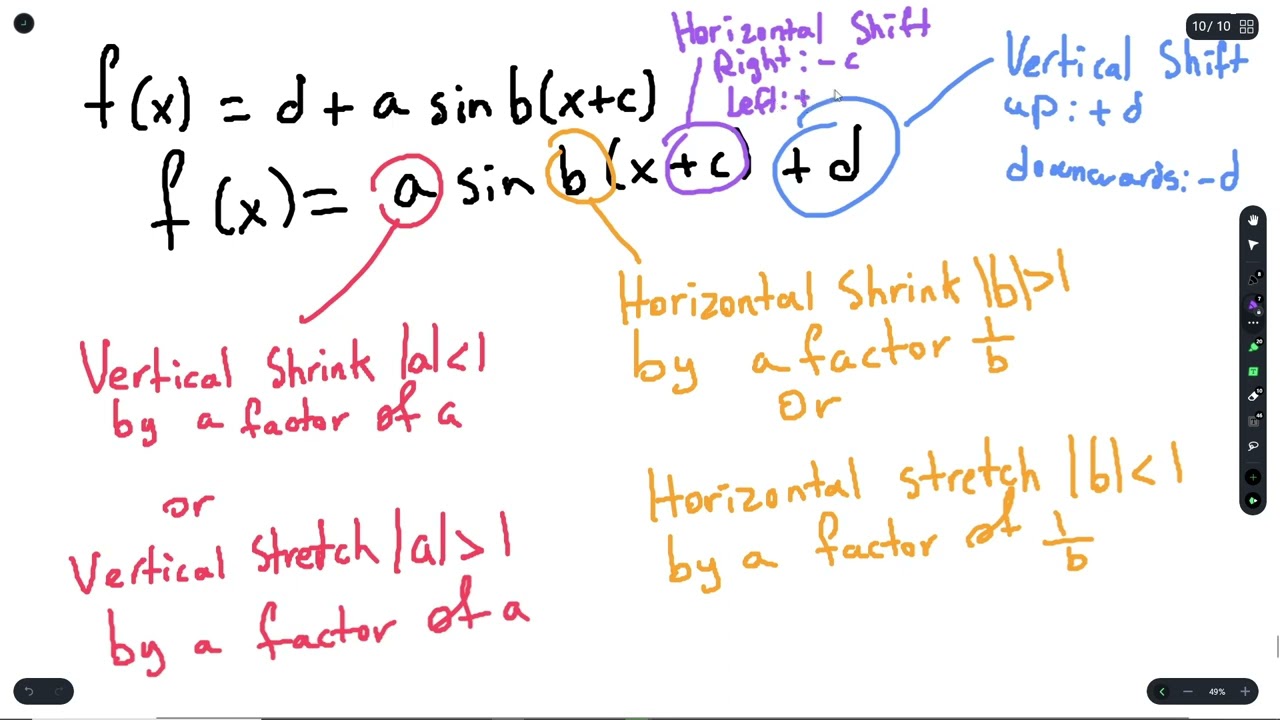 10/10
f(x) = d + a sin b(x+c)
f(x) = a sin b(x+c) + d
Horizontal Shift
Right: - c
Left: +
Vertical Shift
up: + d
downwards: -d
Vertical Shrink |a|<1
by a factor of a
or
Vertical Stretch |a|>1
by a factor of a
Horizontal Shrink |b|>1
by a factor 1/b
Or
Horizontal stretch |b|<1
by a factor of 1/b
49%